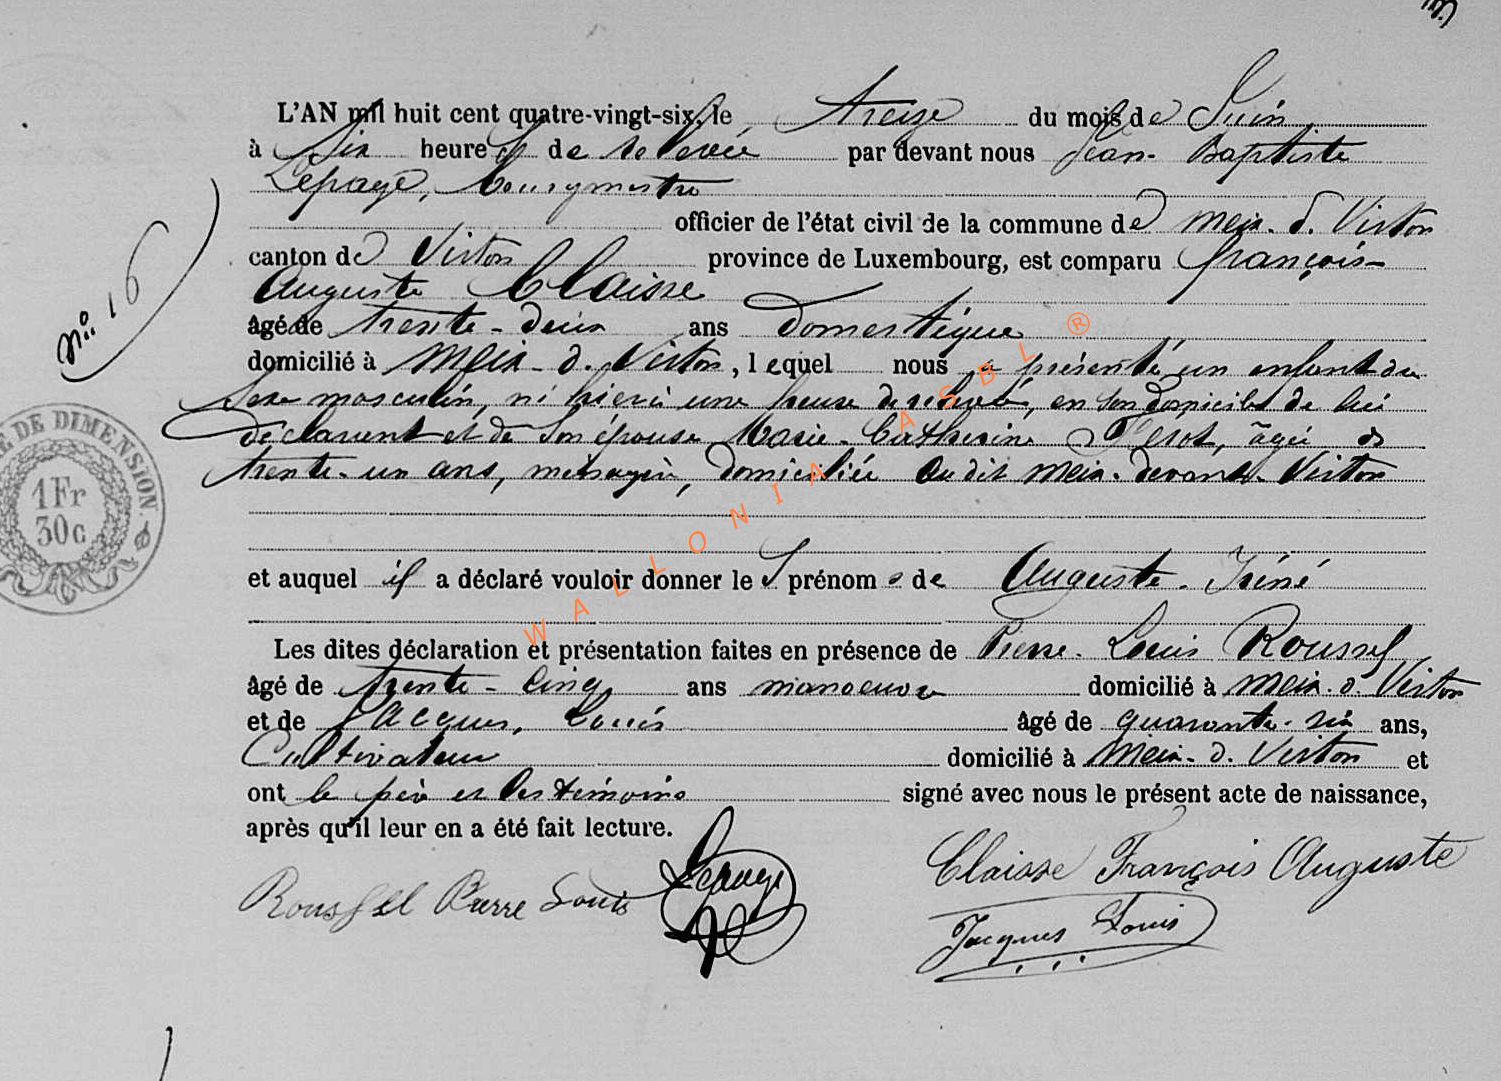 L'AN mil huit cent quatre-vingt-six, le treize du mois de Juin
à six heures de relevée par devant nous Jean-Baptiste
Lepage, bourgmestre
officier de l'état civil de la commune de Meix-d. Virton
canton de Virton province de Luxembourg, est comparu François-
Auguste Claisse
âgé de trente-deux ans domestique
domicilié à Meix-d. Virton, lequel nous a présenté un enfant du
sexe masculin, né hier à une heure de relevée, en son domicile de lui
déclarant et de son épouse Marie-Catherine âgée de
trente-un ans, ménagère, domiciliée au dit Meix-devant-Virton
No. 16
E DE DIMENSION.
1Fr
30c
et auquel il a déclaré vouloir donner les prénoms de Auguste-Iréné
Les dites déclaration et présentation faites en présence de Pierre-Louis Roussel
âgé de trente-cinq ans manoeuvre domicilié à Meix-d. Virton
et de Jacques, Louis âgé de quarante-six ans,
Cultivateur domicilié à Meix-d. Virton et
ont le père et les témoins signé avec nous le présent acte de naissance,
après qu'il leur en a été fait lecture.
Roussel Pierre Louis Lepage Claisse François Auguste
Jacques Louis
WALLONIA ASBL ®